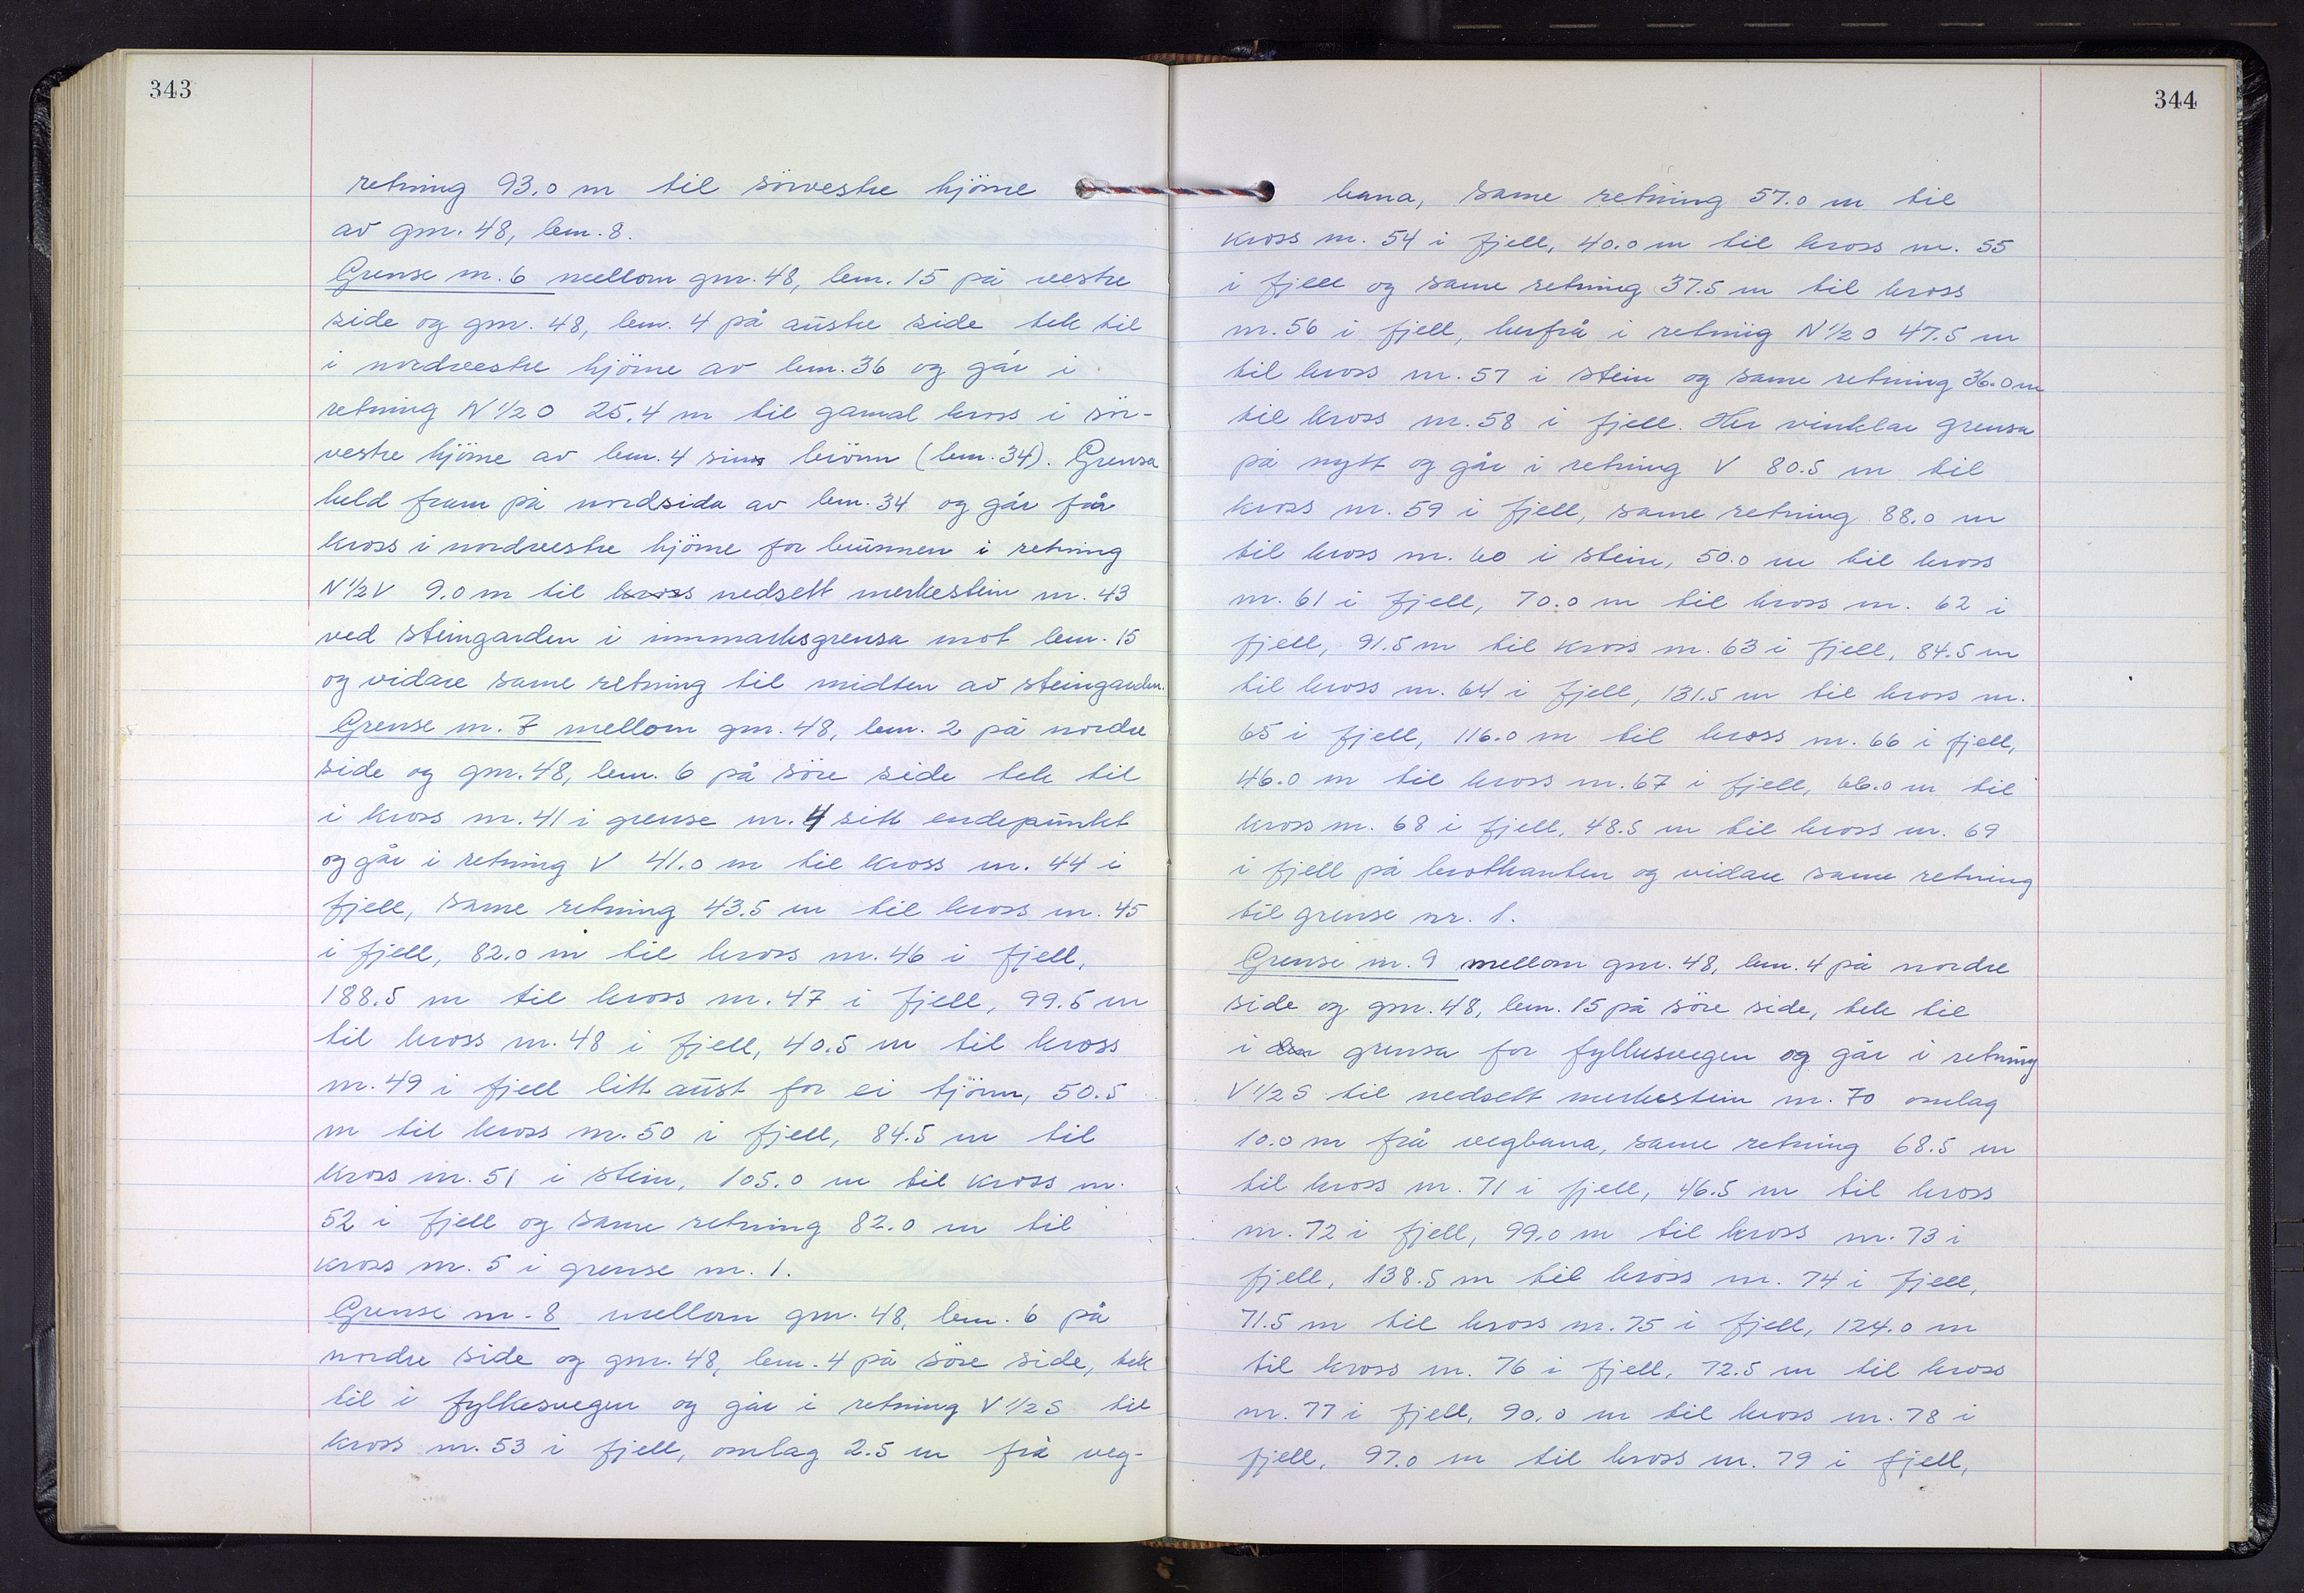 343
retning 93.0 m til sörvestre hjörne
av gnr. 48, bnr. 8.
Grense nr. 6 mellom gnr. 48, bnr. 15 på vestre
side og gnr. 48, bnr. 4 på austre side tek til
i nordvestre hjörne av bnr. 36 og går i
retning N ½ O 25.4 m til gamal kross i sör-
vestre hjörne av bnr. 4 sin brönn (bnr. 34). Grensa
held fram på nordsida av bnr. 34 og går frå
kross i nordvestre hjörne for brunnen i retning
N ½ V 9.0 m til kross nedsett merkestein nr. 43
ved steingarden i innmarksgrensa mot bnr. 15
og vidare same retning til midten av steingarden.
Grense nr. 7 mellom gnr. 48, bnr. 2 på nordre
side og gnr. 48, bnr. 6 på söre side tek til
i kross nr. 41 i grense nr. 4 sitt endepunkt
og går i retning V 41.0 m til kross nr. 44 i
fjell, same retning 43.5 m til kross nr. 45
i fjell, 82.0 m til kross nr. 46 i fjell,
188.5 m til kross nr. 47 i fjell, 99.5 m
til kross nr. 48 i fjell, 40.5 m til kross
nr. 49 i fjell litt aust for ei tjönn, 50.5
m til kross nr. 50 i fjell, 84.5 m til
kross nr. 51 i stein, 105.0 m til kross nr.
52 i fjell og same retning 82.0 m til
kross nr. 5 i grense nr. 1.
Grense nr. 8 mellom gnr. 48, bnr. 6 på
nordre side og gnr. 48, bnr. 4 på söre side, tek
til i fylkesvegen og går i retning V ½ S til
kross nr. 53 i fjell, omlag 2.5 m frå veg-
344
bana, same retning 57.0 m til
kross nr. 54 i fjell, 40.0 m til kross nr. 55
i fjell og same retning 37.5 m til kross
nr. 56 i fjell, herfrå i retning N ½ O 47.5 m
til kross nr. 57 i stein og same retning 36.0 m
til kross nr. 58 i fjell. Her vinklar grensa
på nytt og går i retning V 80.5 m til
kross nr. 59 i fjell, same retning 88.0 m
til kross nr. 60 i stein, 50.0 m til kross
nr. 61 i fjell, 70.0 m til kross nr. 62 i
fjell, 91.5 m til kross nr. 63 i fjell, 84.5 m
til kross nr. 64 i fjell, 131.5 m til kross nr.
65 i fjell, 116.0 m til kross nr. 66 i fjell,
46.0 m til kross nr. 67 i fjell, 66.0 m til
kross nr. 68 i fjell, 48.5 m til kross nr. 69
i fjell på brotkanten og vidare same retning
til grense nr. 1.
Grense nr. 9 mellom gnr. 48, bnr. 4 på nordre
side og gnr. 48, bnr. 15 på söre side, tek til
i grensa for fylkesvegen og går i retning
V ½ S til nedsett merkestein nr. 70 omlag
10.0 m frå vegbana, same retning 68.5 m
til kross nr. 71 i fjell, 46.5 m til kross
nr. 72 i fjell, 99.0 m til kross nr. 73 i
fjell, 138.5 m til kross nr. 74 i fjell,
71.5 m til kross nr. 75 i fjell, 124.0 m
til kross nr. 76 i fjell, 72.5 m til kross
nr. 77 i fjell, 90.0 m til kross nr. 78 i
fjell, 97.0 m til kross nr. 79 i fjell,